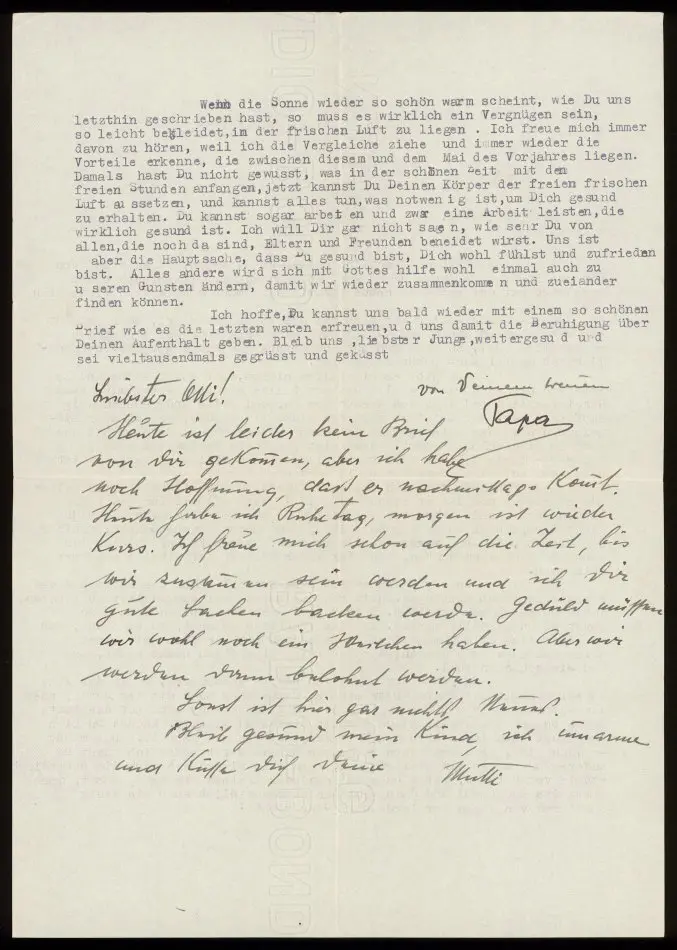 Wenn die Sonne wieder so schön warm scheint, wie Du uns
letzthin geschrieben hast, so muss es wirklich ein Vergnügen sein,
so leicht bekleidet,in der frischen Luft zu liegen . Ich freue mich immer
davon zu hören, weil ich die Vergleiche ziehe und immer wieder die
Vorteile erkenne, die zwischen diesem und dem Mai des Vorjahres liegen.
Damals hast Du nicht gewusst, was in der schönen Zeit mit dem
freien Stunden anfangen,jetzt kannst Du Deinen Körper der freien frischen
Luft aussetzen, und kannst alles tun,was notwenig ist,um Dich gesund
zu erhalten. Du kannst sogar arbeiten und zwar eine Arbeit leisten,die
wirklich gesund ist. Ich will Dir gar nicht sagen, wie sehr Du von
allen,die noch da sind, Eltern und Freunden beneidet wirst. Uns ist
aber die Hauptsache, dass Du gesund bist, Dich wohl fühlst und zufrieden
bist. Alles andere wird sich mit Gottes hilfe wohl einmal auch zu
u seren Gunsten ändern, damit wir wieder zusammenkommen und zueiander
finden können.
Ich hoffe,Du kannst uns bald wieder mit einem so schönen
Brief wie es die letzten waren erfreuen,u d uns damit die Beruhigung über
Deinen Aufenthalt geben. Bleib uns ,liebster Junge,weitergesu d und
sei vieltausendmals gegrüsst und geküsst
von Deinem treuen
Papa
Liebster Olli!
Heute ist leider kein Brief
von Dir gekommen, aber ich habe
noch Hoffnung, dass er nachmittags kommt.
Heute habe ich Ruhetag, morgen ist wieder
Kurs. Ich freue mich schon auf die Zeit, bis
wir zusammen sein werden und ich Dir
gute Sachen backen werde. Geduld müssen
wir wohl noch ein bisschen haben. Aber wir
werden dann belohnt werden.
Sonst ist hier gar nichts Neues.
Bleib gesund mein Kind, ich umarme
und küsse Dich Deine Mutti